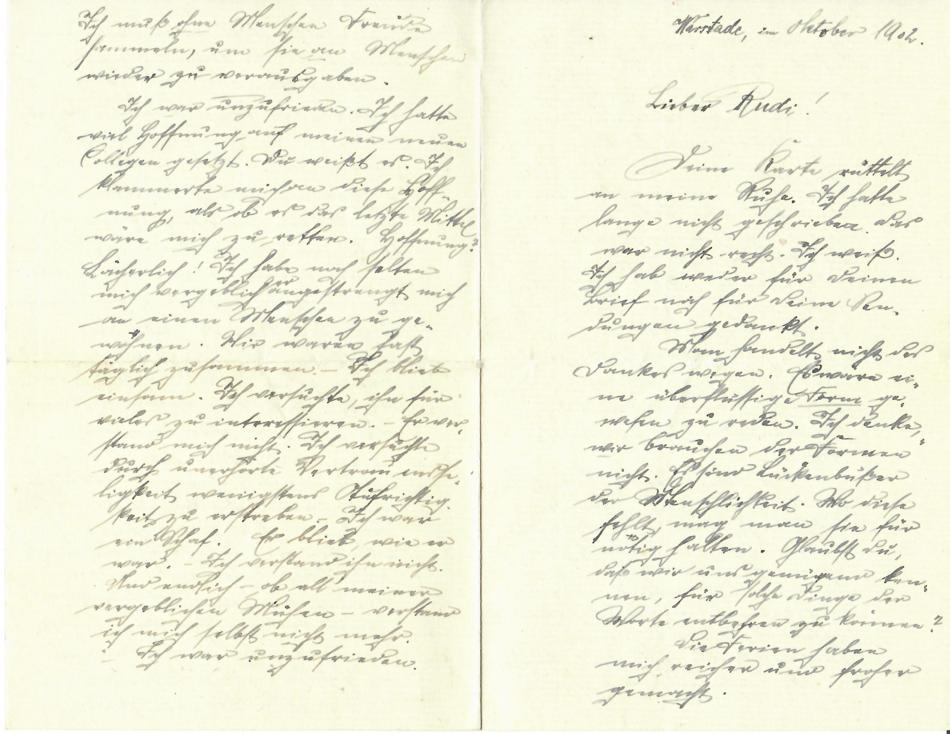 Warstade, im Oktober 1902.
Lieber Rudi!
Deine Karte rüttelt
an meine Ruhe. Ich hatte
lange nicht geschrieben. Das
war nicht recht. Ich weiß.
Ich hab weder für Deinen
Brief noch für Deine Sen-
dungen gedankt.
Man handelt nicht des
Dankes wegen. Es wäre ei-
ne überflüssige Form ge-
wesen zu reden. Ich denke,
wir brauchen der Formen
nicht. Es sind Lückenbüßer
der Menschlichkeit. Wo diese
fehlt, mag man sie für
nötig halten. Glaubst Du,
daß wir uns genügend ken-
nen, für solche Dinge der
Worte entbehren zu können?
Die Ferien haben
mich reicher und froher
gemacht.
Ich muß ohne Menschen Freude
sammeln, um sie an Menschen
wieder zu verausgaben.
Ich war unzufrieden. Ich hatte
viel Hoffnung auf meinen neuen
Collegen gesetzt. Du weißt es. Ich
klammerte mich an diese Hoff-
nung, als ob es das letzte Mittel
wäre mich zu retten. Hoffnung?
Lächerlich! Ich habe noch selten
mich vergeblicher angestrengt mich
an einen Menschen zu ge-
wöhnen. Wir waren fast
täglich zusammen. – Ich blieb
einsam. Ich versuchte, ihn für
vieles zu interessieren. – Er ver-
stand mich nicht. Ich versuchte
durch unerhörte Vertrauensse-
ligkeit wenigstens Aufrichtig-
keit zu erstreben – Ich war
ein Schaf. Er blieb, wie er
war. – Ich verstand ihn nicht.
Und endlich – ob all meiner
vergeblichen Mühen – verstand
ich mich selbst nicht mehr.
– Ich war unzufrieden.